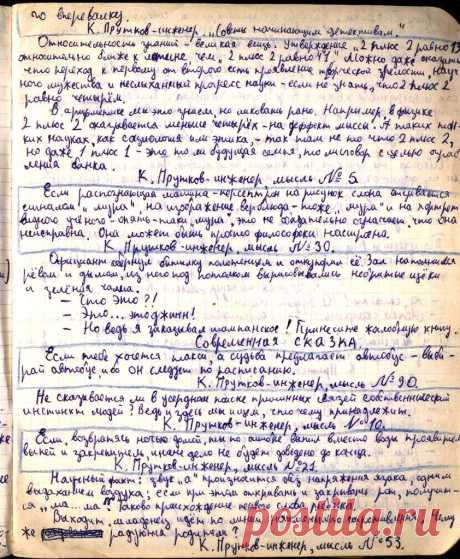 го вперевалку.
К. Прутков-инженер. „Советы начинающим детективам."
Относительность знаний - великая вещь. Утверждение „2 плюс 2 равно 13"
относительно ближе к истине, чем „2 плюс 2 равно 41". Можно даже сказать,
что переход к первому от второго есть проявление творческой зрелости, науч-
ного мужества и неслыханный прогресс науки - если не знать, что 2 плюс 2
равно четырём.
В арифметике мы это знаем, но ликовать рано. Например, в физике
2 плюс 2 оказывается меньше четырёх - на деффект массы. А в таких тон-
ких науках, как социология или этика, - так там не то что 2 плюс 2,
но даже 1 плюс 1 - это то ли будущая семья, то ли сговор с целью ограб-
ления банка.
К. Прутков-инженер, мысль № 5.
Если распознающая машина - персептрон на рисунок слона отзывается
сигналом „мура", на изображение верблюда - тоже „мура" и на портрет
видного учёного - опять-таки „мура", это не обязательно означает, что она
неисправна. Она может быть просто философски настроена.
К. Прутков-инженер, мысль № 30.
Официант обернул бутылку полотенцем и откупорил её. Зал наполнился
рёвом и дымом, из него под потолком вырисовывались небритые щёки
и зелёная чалма.
- Что это?!
- Это... это джинн!
- Но ведь я заказывал шампанское! Принесите жалобную книгу.
Современная сказка.
Если тебе хочется такси, а судьба предлагает автобус - выби-
рай автобус, ибо он следует по расписанию.
К. Прутков-инженер, мысль № 90.
Не сказывается ли в усердном поиске причинных связей собственнический
инстинкт людей? Ведь и здесь мы ищем, что чему принадлежит.
К. Прутков-инженер, мысль № 10.
Если, возвратясь ночью домой, ты по ошибке выпил вместо воды проявитель,
выпей и закрепитель, иначе дело не будет доведено до конца.
К. Прутков-инженер, мысль № 21.
Научный факт: звук „а" произносится без напряжения языка, одним
выдыханием воздуха; если при этом открывать и закрывать рот, получит-
ся „ма...ма". Таково происхождение первого слова ребёнка.
Выходит, младенец идёт по линии наименьшего сопротивления. Чему
же радуются родители?
К. Прутков-инженер, мысль № 53.